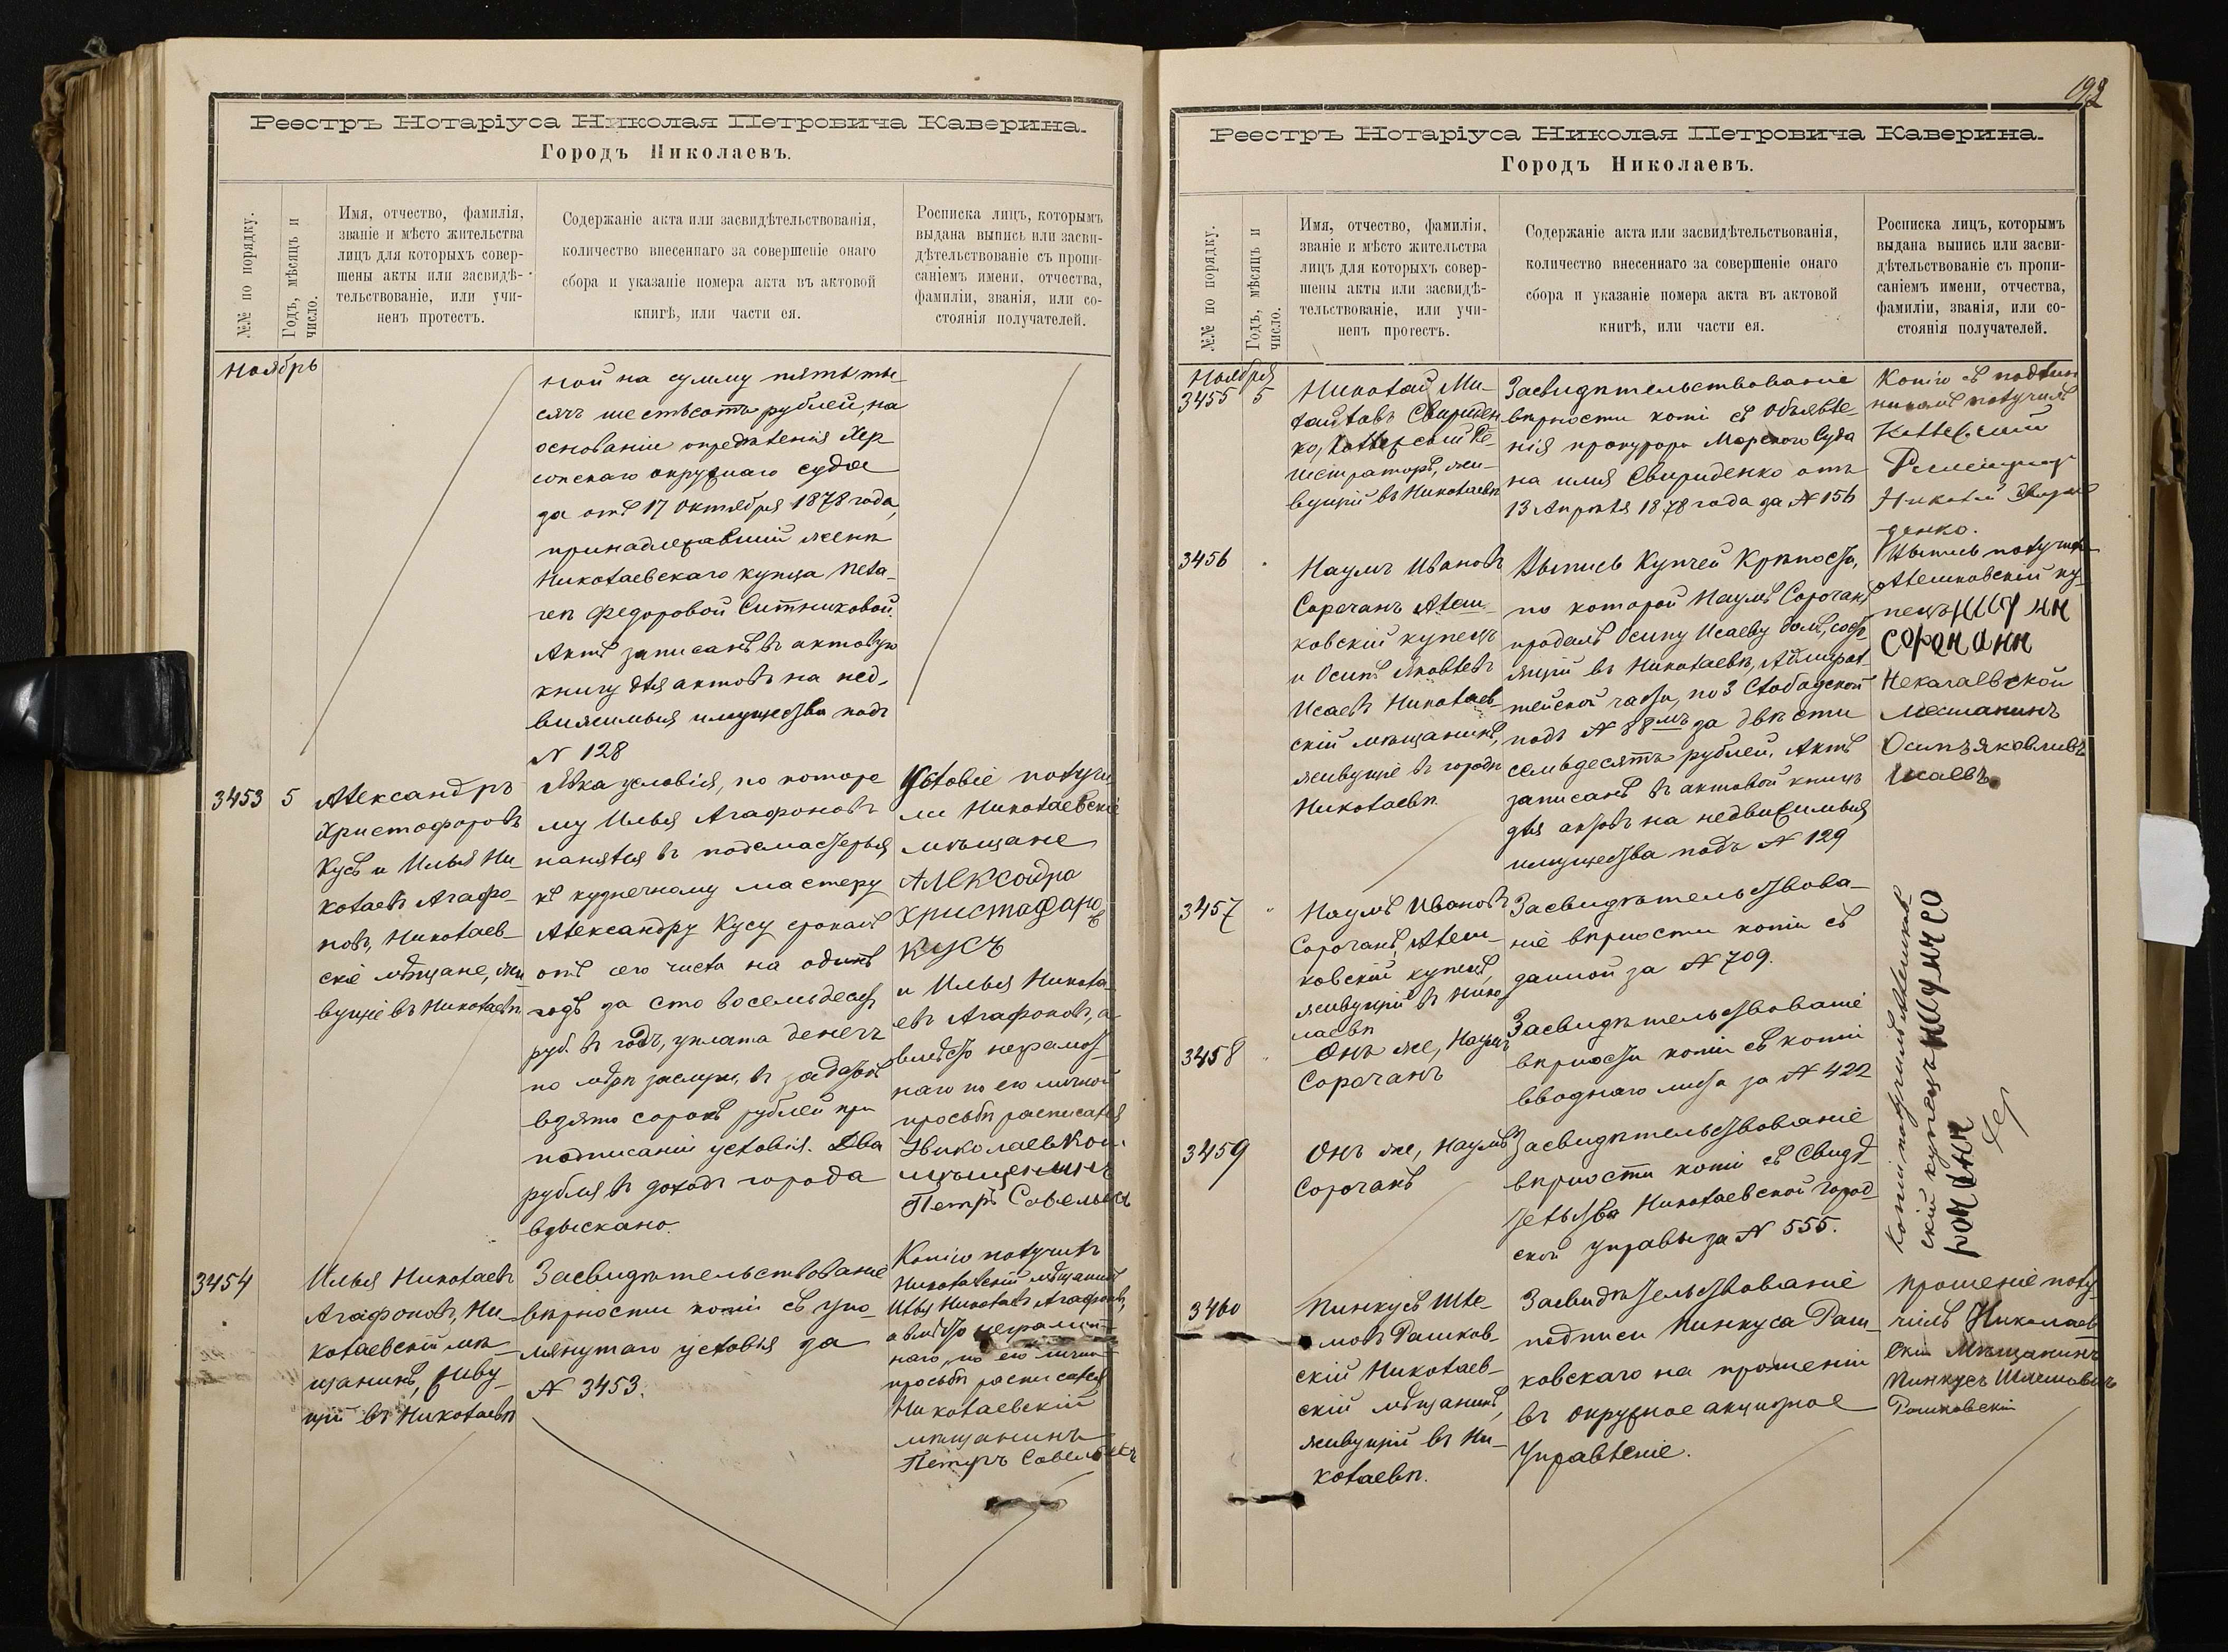 Реестръ Нотаріуса Николая Петровича Каверина.
Городъ Николаевъ.
№№ по порядку.
Годъ, мѣсяцъ и
число.
Имя, отчество, фамилія,
званіе и мѣсто жительства
лицъ для которыхъ совер-
шены акты или засвидѣ-
тельствованіе, или учи-
ненъ протестъ.
Содержаніе акта или засвидѣтельствованія,
количество внесеннаго за совершеніе онаго
сбора и указаніе номера акта въ актовой
книгѣ, или части ея.
Росписка лицъ, которымъ
выдана выпись или засви-
дѣтельствованіе съ пропи-
саніемъ имени, отчества,
фамиліи, званія, или со-
стоянія получателей.
Ноябрь
ной на сумму пять ты-
сячъ шестьсотъ рублей, на
основаніи опредѣленія Хер
сонскаго окружнаго суда
за отъ 17 Октября 1878 года,
принадлежавшій женѣ
Николаевскаго купца Пела-
геѣ Федоровой Ситниковой.
Актъ записанъ въ актовую
книгу для актовъ на нед-
вижимыя имущества подъ
№ 128
3453 5
Александръ
Христофоровъ
Кусъ и Илья Ни-
колаевъ Агафо-
новъ, Николаев-
скіе мѣщане, жи
вущіе въ Николаевѣ
Явка условія, по которо
му Илья Агафоновъ
нанялся въ подмастерья
къ кузнечному мастеру
Александру Кусу срокомъ
отъ сего числа на одинъ
годъ за сто восемьдесят
руб. въ годъ, уплата денегъ
по мѣрѣ заслуги, въ задатокъ
взято сорокъ рублей при
подписаніи условія. Два
рубля въ доходъ города
взыскано.
Условіе получи
ли Николаевскіе
мѣщане
Александра
Христафаровъ
Кусъ
и Илья Никола-
евъ Агафоновъ, а
вмѣсто неграмот-
наго по его личной
просьбѣ расписался
Николаевкой
мѣщенинъ
Петръ Савельевъ
3454
Илья Николаевъ
Агафоновъ, Ни-
колаевскій мѣ-
щанинъ, живу-
щій въ Николаевѣ
Засвидѣтельствованіе
вѣрности копіи съ упо-
мянутаго условія за
№ 3453.
Копію получилъ
Николаевскій мѣщанинъ
Илья Николаевъ Агафоновъ,
а вмѣсто неграмот-
наго, по его личной
просьбѣ расписался
Николаевскій
мѣщанинъ
Петръ Савельевъ
192
Реестръ Нотаріуса Николая Петровича Каверина.
Городъ Николаевъ.
№№ по порядку.
Годъ, мѣсяцъ и
число.
Имя, отчество, фамилія,
званіе и мѣсто жительства
лицъ для которыхъ совер-
шены акты или засвидѣ-
тельствованіе, или учи-
ненъ протестъ.
Содержаніе акта или засвидѣтельствованія,
количество внесеннаго за совершеніе онаго
сбора и указаніе номера акта въ актовой
книгѣ, или части ея.
Росписка лицъ, которымъ
выдана выпись или засви-
дѣтельствованіе съ пропи-
саніемъ имени, отчества,
фамиліи, званія, или со-
стоянія получателей.
Ноября
3455 5
Николай Ми-
хайловъ Свириден
ко, Коллежскій Ре-
гистраторъ, жи-
вущій въ Николаевѣ
Засвидѣтельствованіе
вѣрности копіи съ объявле-
нія прокурора Морского Суда
на имя Свириденко отъ
13 Апрѣля 1878 года за № 156
Копію съ подлин
никомъ получилъ
Коллежскій
Регистраторъ
Николай Свири
денко.
3456
Наумъ Ивановъ
Сорочанъ Алеш-
ковскій купецъ
и Осипъ Яковлевъ
Исаевъ Николаев-
скій мѣщанинъ,
живущіе въ городѣ
Николаевѣ
Выпись Купчей Крѣпости,
по которой Наумъ Сорочанъ
продалъ Осипу Исаеву домъ, состо
ящій въ Николаевѣ, Адмирал-
тейской части, по 3 Слободской
подъ № 88мъ за двѣсти
семьдесятъ рублей. Актъ
записанъ въ актовой книгѣ
для актовъ на недвижимыя
имущества подъ № 129
Выпись получилъ
Алешковскій ку-
пецъ наумъ
сороч анн
Некалаевской
мещанинъ
Осипъ яковливъ
Исаевъ
3457
Наумъ Ивановъ
Сорочанъ, Алеш-
ковскій купецъ,
живущій въ Нико
лаевѣ
Засвидѣтельствова-
ніе вѣрности копіи съ
данной за № 709.
3458
Онъ же, Наумъ
Сорочанъ
Засвидѣтельствованіе
вѣрности копіи съ копіи
вводнаго листа за № 422
3459
Онъ же, Наумъ
Сорочанъ
Засвидѣтельствованіе
вѣрности копіи съ Свидѣ-
тельства Николаевской город-
ской управы за № 555.
Копіи получилъ Алешков-
скій купецъ наумъ со
рочанн
3460
Пинкусъ Шле-
мовъ Рашков-
скій Николаев-
скій мѣщанинъ,
живущій въ Ни-
колаевѣ.
Засвидѣтельствованіе
подписи Пинкуса Раш-
ковскаго на прошеніи
въ окружное акцизное
Управленіе.
Прошеніе полу-
чилъ Николаев
скій Мѣщанинъ
Пинкусъ Шлемовичъ
Рашковскій